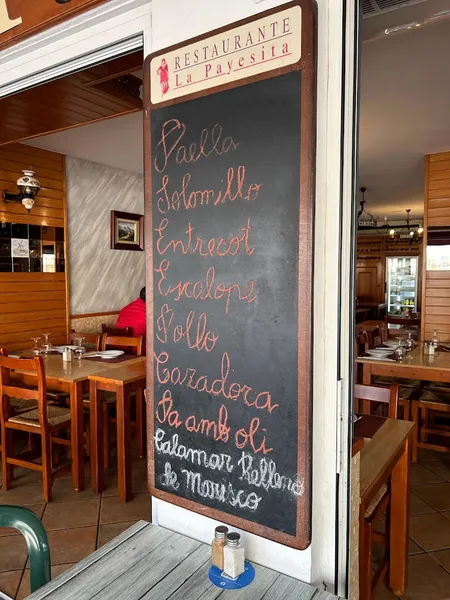 RESTAURANTE
La Payesita
Paella
Solomillo
Entrecot
Escalope
Pollo
Cazadora
Pa amb oli
Calamar Relleno
de Marisco